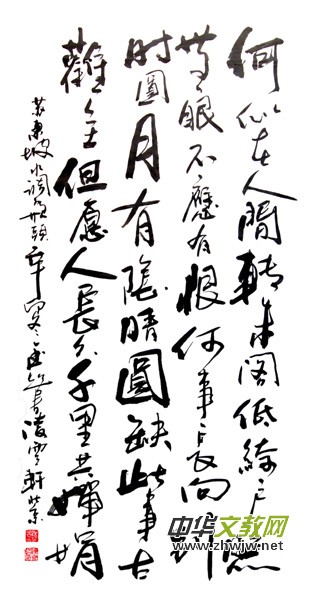 何似在人間轉朱閣低綺戶照
無眠不應有恨何事長向別
时圓月有陰晴圓缺此事古
難全但愿人長久千里共嬋娟
蘇東坡水調歌頭 凌雲軒
中华文教网
www.zhwjw.net